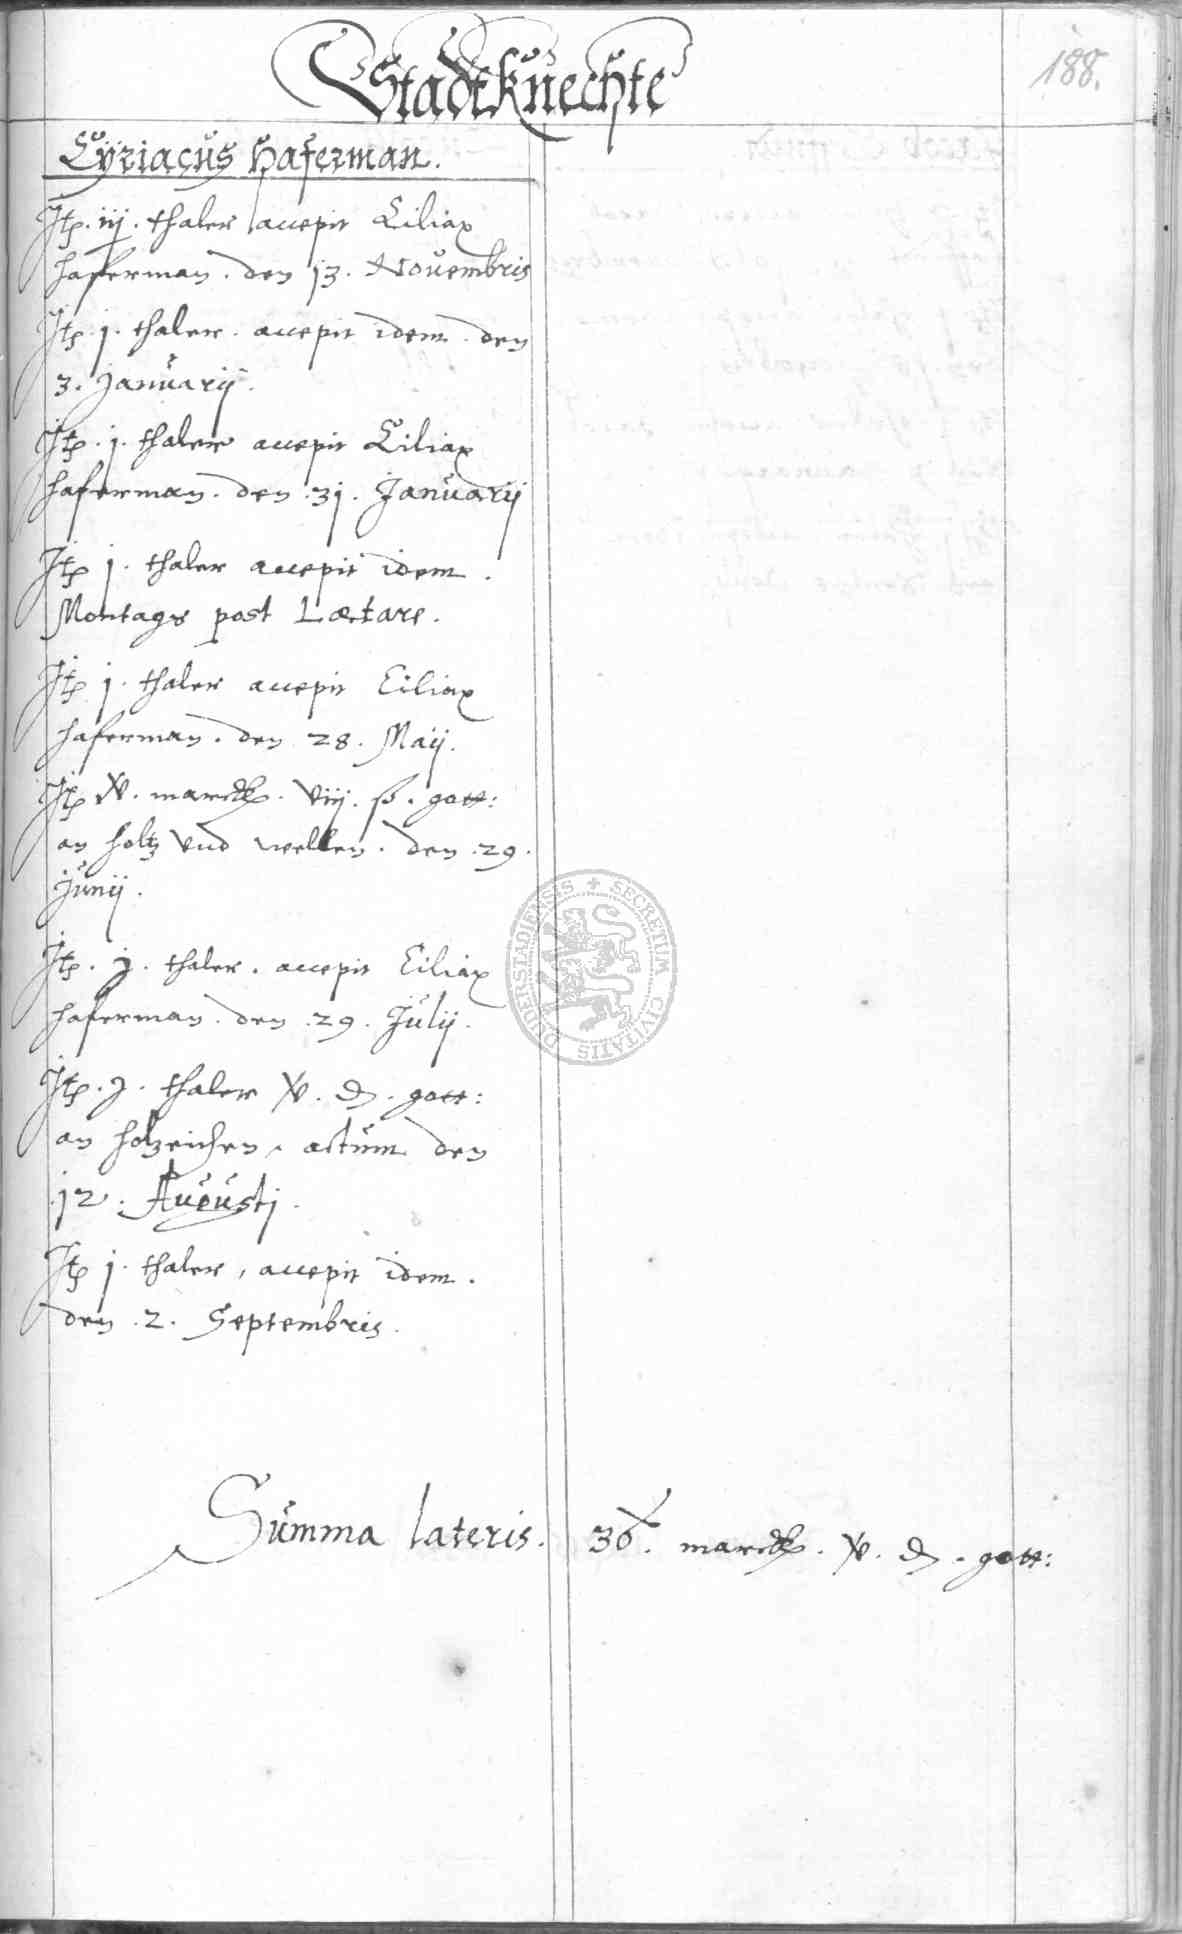 188.
Stadtknechte
Cÿriacus Haferman.
Itp. iij. thaler accepit Ciliax
Haferman. den 13. Novembris
Itp. j. thaler. accepit idem. den
3. Januarij.
Itp. j. thaler accepit Ciliax
Haferman. den 31. Januarij
Itp j. thaler accepit idem.
Montags post Lætare.
Itp j. thaler accepit Ciliax
Haferman. den 28. Maij.
Itp x. marck. viij. ß. gott:
an holtz vnd wellen. den .29.
Junij.
Itp. j. thaler. accepit Ciliax
Haferman. den .29. Julij.
Itp. j. thaler x. d. gott:
an holzeichen, actum den
12. Augusti.
Itp j. thaler, accepit idem.
den .2. Septembris.
Summa lateris. marck. x. d. gott:
SECRETUM CIVITATIS DUDERSTADIENSIS